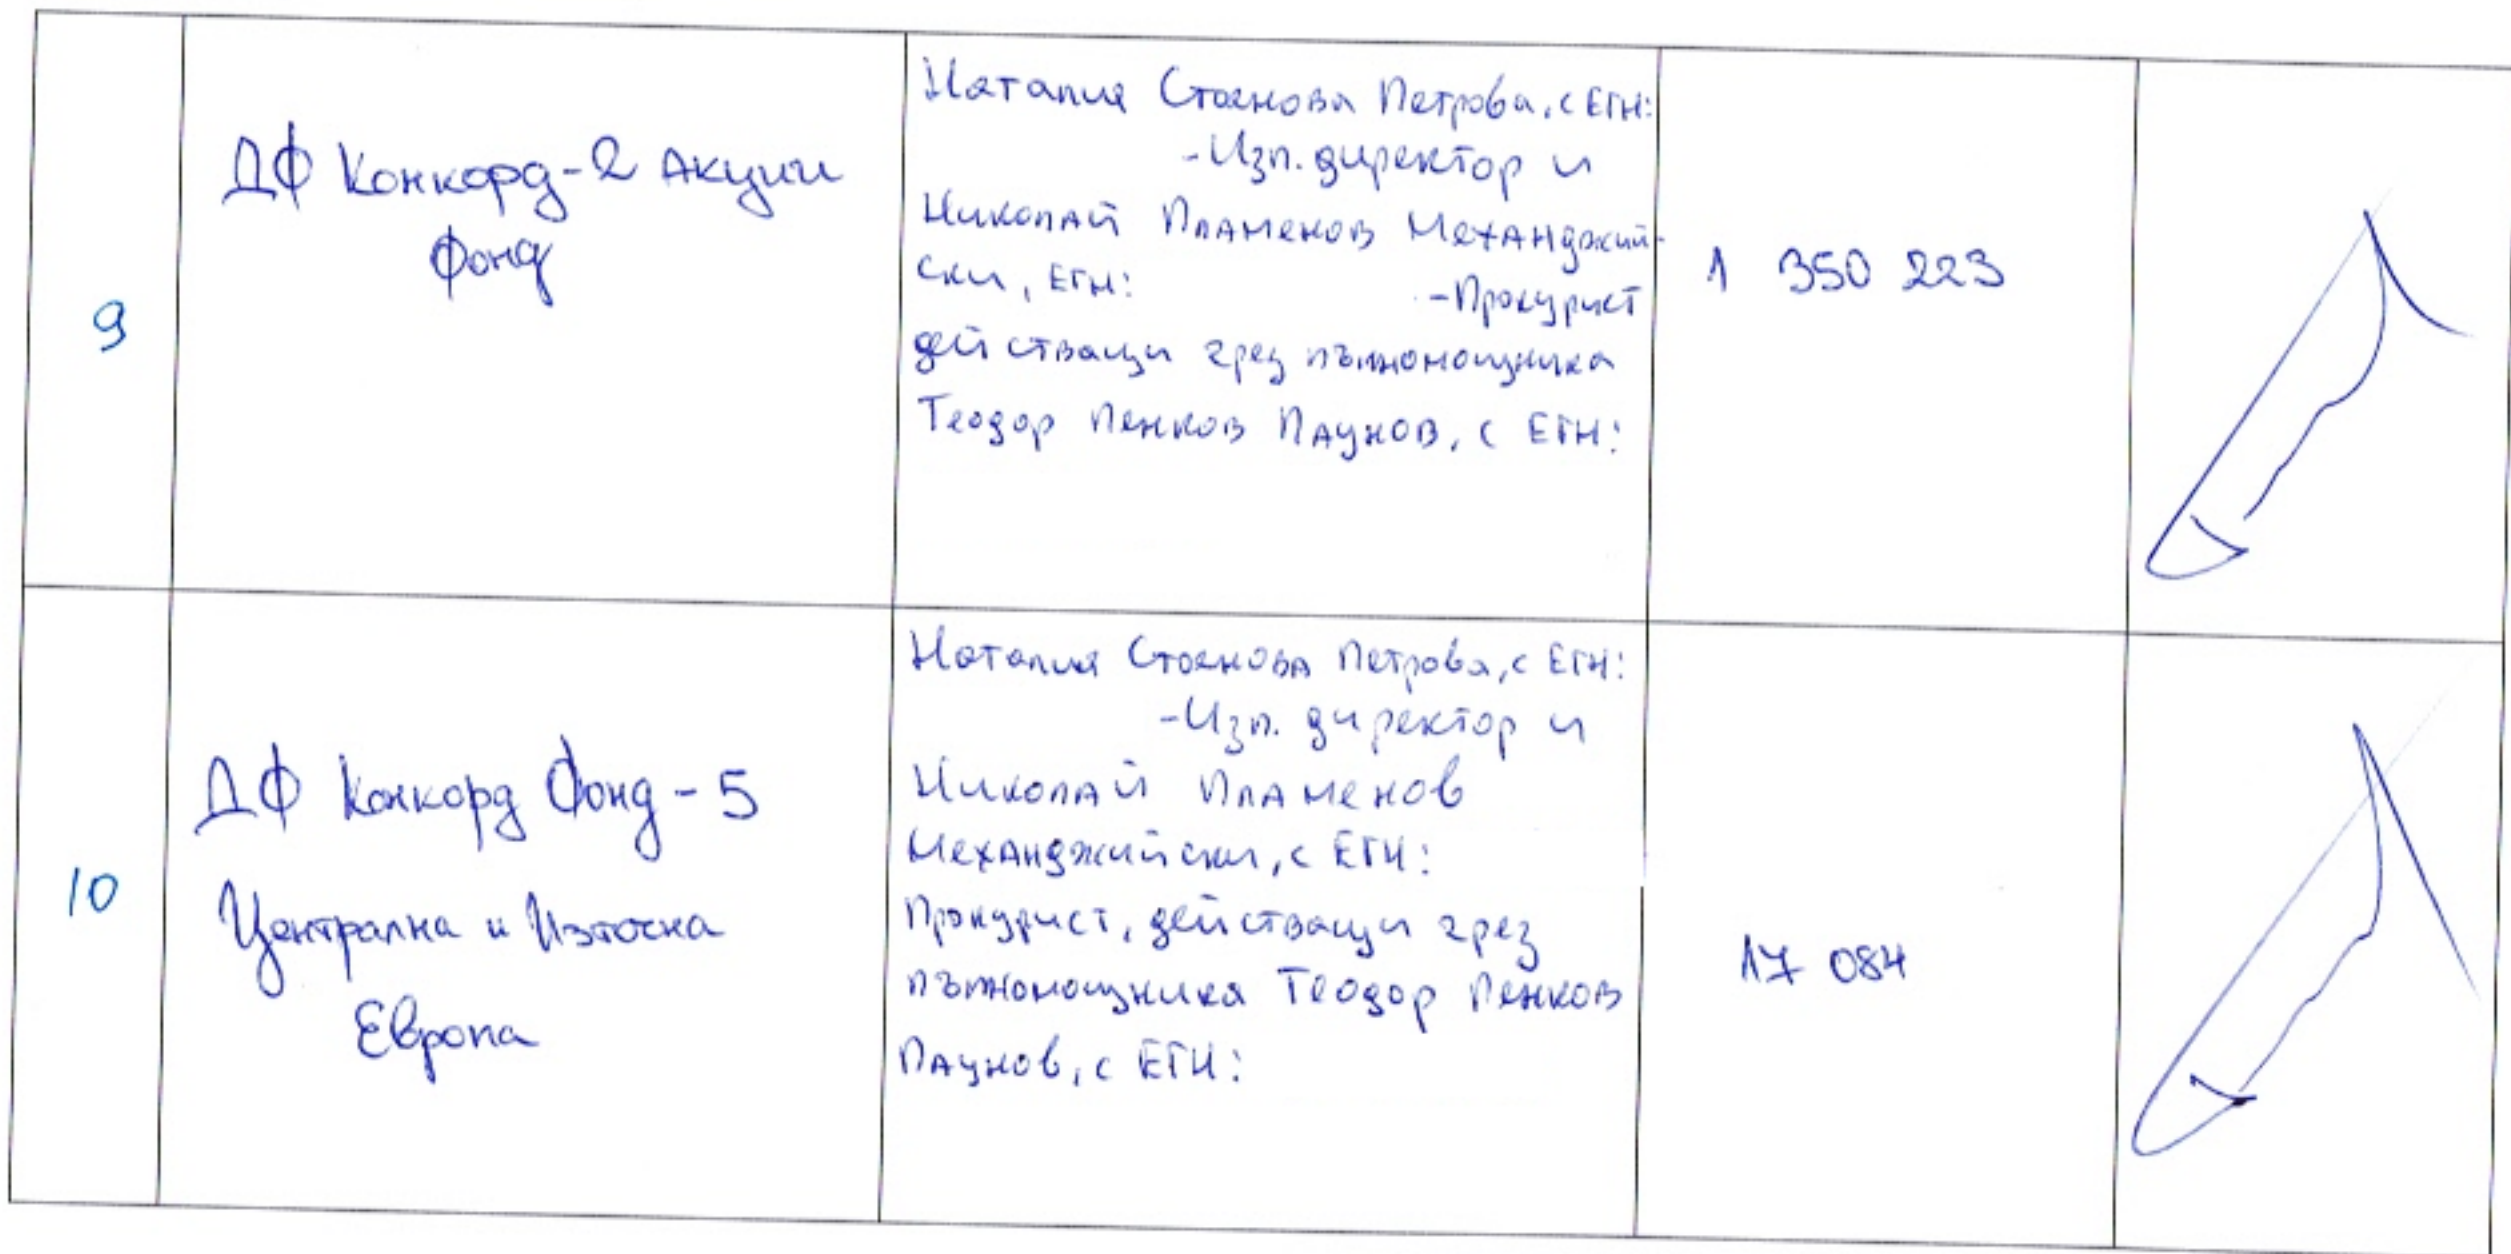 9
ДФ Конкорд-2 Акции
Фонд
Наталия Стоянова Петрова, с ЕГН:
-Изп. директор и
Николай Пламенов Механджий-
ски, ЕГН:
-Прокурист
действащи чрез пълномощника
Теодор Пенков Паунов, с ЕГН:
1 350 223
10
ДФ Конкорд Фонд - 5
Централна и Източна
Европа
Наталия Стоянова Петрова, с ЕГН:
-Изп. директор и
Николай Пламенов
Механджийски, с ЕГН:
Прокурист, действащи чрез
пълномощника Теодор Пенков
Паунов, с ЕГН:
17 084